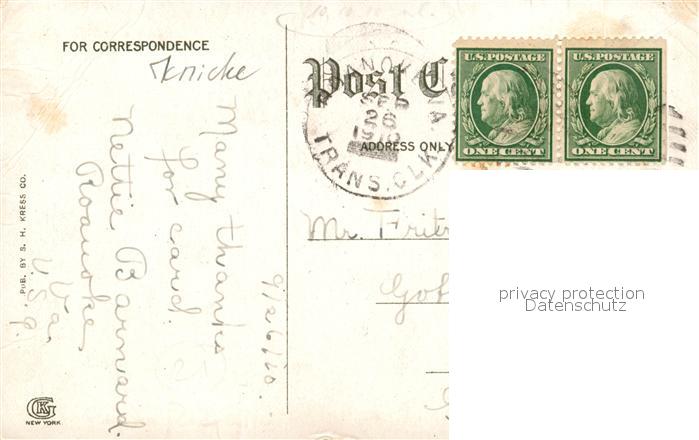 FOR CORRESPONDENCE
Knicke
Post C
ADDRESS ONLY
ROANOKE, VA.
SEP
26
1910
TRANS. CLK.
U.S. POSTAGE
ONE CENT
U.S. POSTAGE
ONE CENT
Mr. Fritz
Got
privacy protection
Datenschutz
9/26/10.
Many thanks
for card.
Nettie Barnard.
Roanoke,
Va.
U.S.A.
PUB. BY S. H. KRESS CO.
NEW YORK